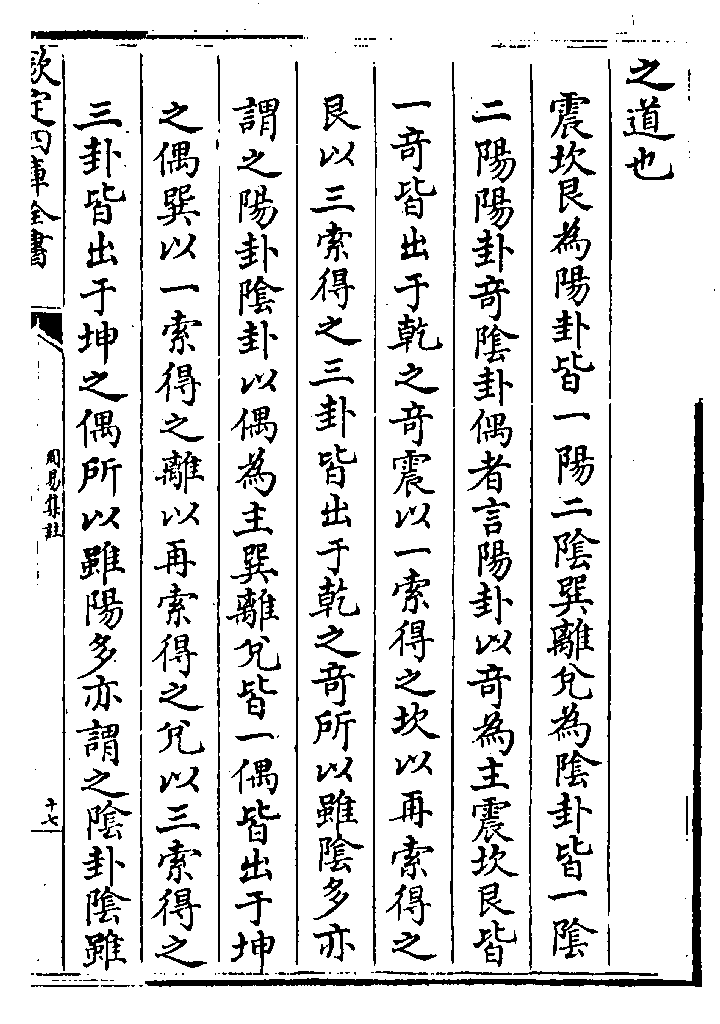 之道也
震坎艮為陽卦皆一陽二陰巽離兌為陰卦皆一陰
二陽陽卦奇陰卦偶者言陽卦以奇為主震坎艮皆
一奇皆出于乾之奇震以一索得之坎以再索得之
艮以三索得之三卦皆出于乾之奇所以雖陰多亦
謂之陽卦陰卦以偶為主巽離兌皆一偶皆出于坤
之偶巽以一索得之離以再索得之兌以三索得之
三卦皆出于坤之偶所以雖陽多亦謂之陰卦陰雖
欽定四庫全書
周易集註
十七